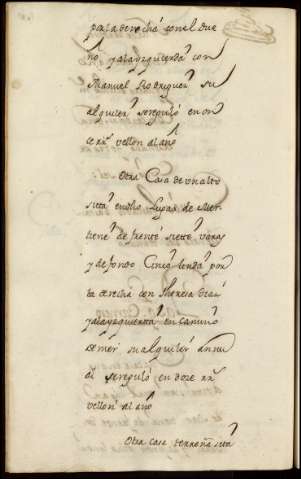 por la derecha con el due
no y a la yzquierda con
Manuel Rodriguez su
alquiler se reguló en on
ce rrs vellon al año
Otra Casa de un alto
sita en dho Lugar de
tiene de frente siette varas
y de fondo Cinco linda por
la derecha con Theresa
y a la yzquierda en camino
su alquiler annu
al se reguló en doze rrs
vellon al año
Otra casa terreña sita